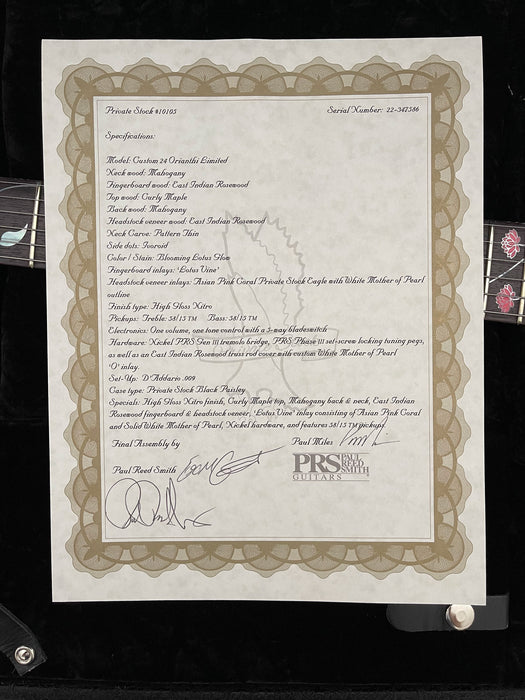 Private Stock #10105 Serial Number: 22-347586
Specifications:
Model: Custom 24 Orianthi Limited
Neck wood: Mahogany
Fingerboard wood: East Indian Rosewood
Top wood: Curly Maple
Back wood: Mahogany
Headstock veneer wood: East Indian Rosewood
Neck Carve: Pattern Thin
Side dots: Ivoroid
Color / Stain: Blooming Lotus Glow
Fingerboard inlays: 'Lotus Vine'
Headstock veneer inlays: Asian Pink Coral Private Stock Eagle with White Mother of Pearl
outline
Finish type: High Gloss Nitro
Pickups: Treble: 58/15 TM Bass: 58/15 TM
Electronics: One volume, one tone control with a 5-way bladeswitch
Hardware: Nickel PRS Gen III tremolo bridge, PRS Phase III set-screw locking tuning pegs,
as well as an East Indian Rosewood truss rod cover with custom White Mother of Pearl
'O' inlay.
Set-Up: D'Addario .009
Case type: Private Stock Black Paisley
Specials: High Gloss Nitro finish, Curly Maple top, Mahogany back & neck, East Indian
Rosewood fingerboard & headstock veneer, 'Lotus Vine' inlay consisting of Asian Pink Coral
and Solid White Mother of Pearl, Nickel hardware, and features 58/15 TM pickups.
Final Assembly by Paul Miles
Paul Reed Smith
PRS PAUL REED SMITH
GUITARS